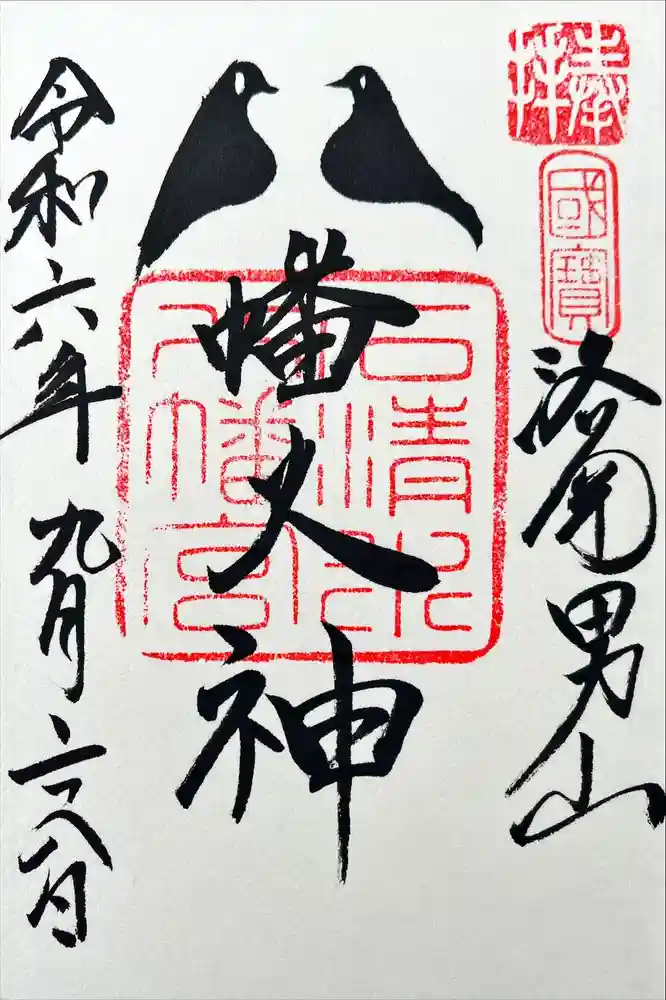 奉拝
國寶
洛南男山
八幡大神
石清水八幡宮
令和六年九月二十八日